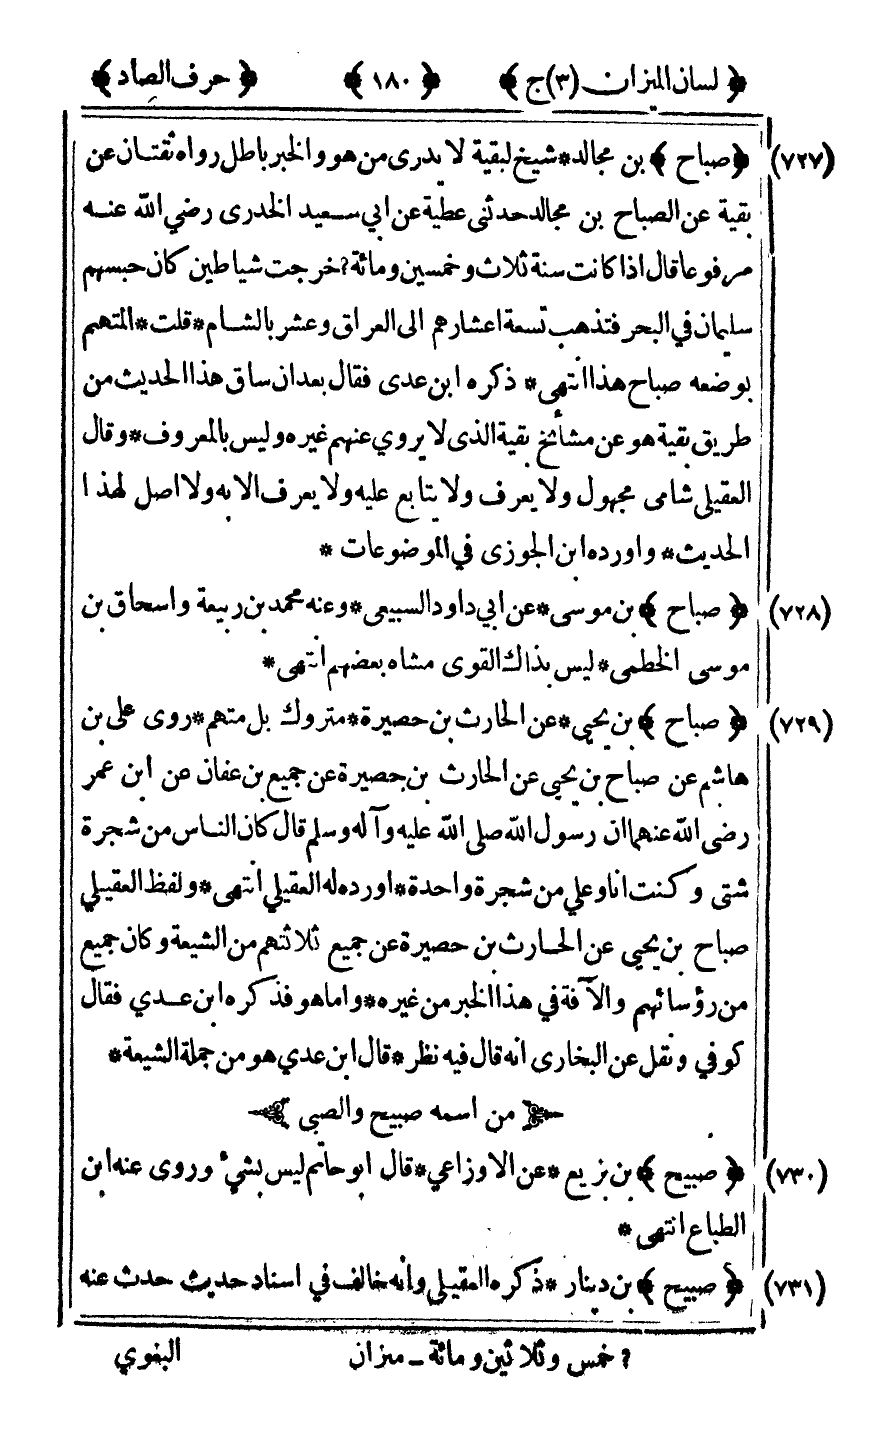 ﴿ لسان الميزان (٣) ج ﴾ ﴿ ١٨٠ ﴾ ﴿ حرف الصاد ﴾
(٧٢٧) ﴿ صباح ﴾ بن مجالد * شيخ لبقية لا يدرى من هو والخبر باطل رواه ثقتان عن
بقية عن الصباح بن مجالد حدثنى عطية عن ابي سعيد الخدرى رضي الله عنه
مرفوعا قال اذا كانت سنة ثلاث وخمسين ومائة؟ خرجت شياطين كان حبسهم
سليمان في البحر فتذهب تسعة اعشارهم الى العراق وعشر بالشام * قلت * المتهم
بوضعه صباح هذا انتهى * ذكره ابن عدى فقال بعد ان ساق هذا الحديث من
طريق بقية هو عن مشائخ بقية الذى لا يروي عنهم غيره وليس بالمعروف * وقال
العقيلى شامى مجهول ولا يعرف ولا يتابع عليه ولا يعرف الا به ولا اصل لهذا
الحديث * واورده ابن الجوزى في الموضوعات *
(٧٢٨) ﴿ صباح ﴾ بن موسى * عن ابي داود السبيعى * وعنه محمد بن ربيعة واسحاق بن
موسى الخطمى * ليس بذاك القوى مشاه بعضهم انتهى *
(٧٢٩) ﴿ صباح ﴾ بن يحيى * عن الحارث بن حصيرة * متروك بل متهم * روى على بن
هاشم عن صباح بن يحيى عن الحارث بن حصيرة عن جميع بن عفان عن ابن عمر
رضى الله عنهما ان رسول الله صلى الله عليه وآله وسلم قال كان الناس من شجرة
شتى وكنت انا وعلي من شجرة واحدة * اورده له العقيلي انتهى * ولفظ العقيلي
صباح بن يحيى عن الحارث بن حصيرة عن جميع ثلاثتهم من الشيعة وكان جميع
من رؤسائهم والآفة في هذا الخبر من غيره * واما هو فذكره ابن عدي فقال
كوفي ونقل عن البخارى انه قال فيه نظر * قال ابن عدي هو من جملة الشيعة *
من اسمه صبيح والصبى
(٧٣٠) ﴿ صبيح ﴾ بن بزيع * عن الاوزاعي * قال ابو حاتم ليس بشيء وروى عنه ابن
الطباع انتهى *
(٧٣١) ﴿ صبيح ﴾ بن دينار * ذكره العقيلي وانه خالف في اسناد حديث حدث عنه
؟ خمس وثلاثين ومائة ـ ميزان البغوي